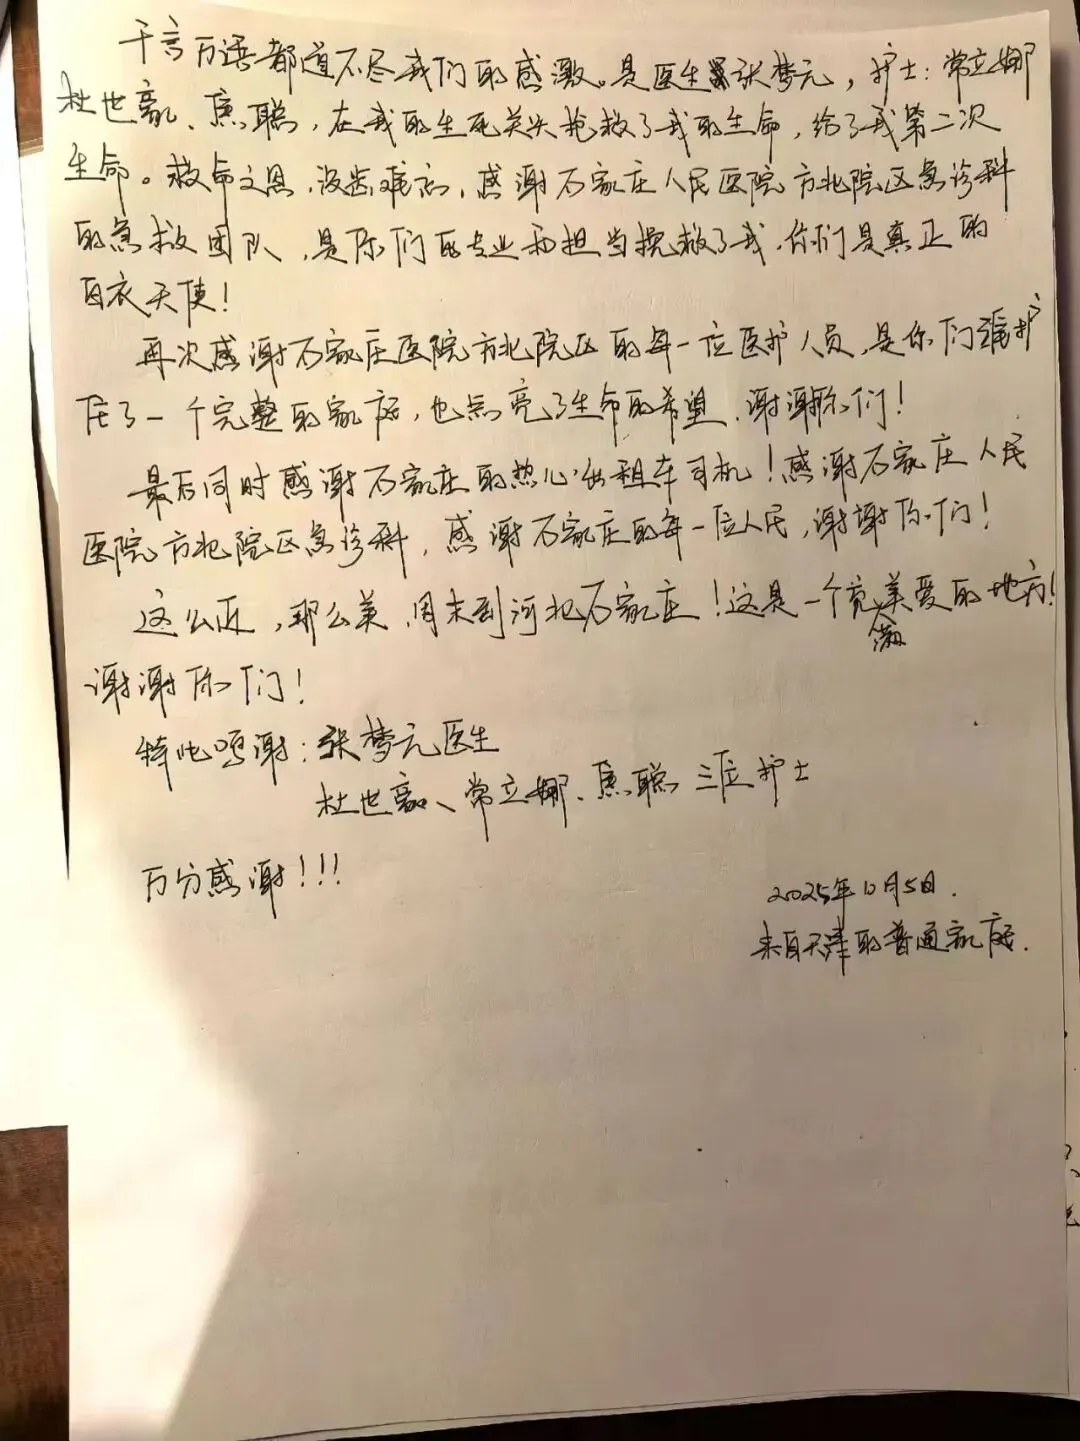 千言万语都道不尽我们的感激。是医生张梦元，护士：常立娜
杜世豪、焦聪，在我的生死关头抢救了我的生命，给了我第二次
生命。救命之恩，没齿难忘，感谢石家庄人民医院方北院区急诊科
的急救团队，是你们的专业和担当挽救了我，你们是真正的
白衣天使！
再次感谢石家庄医院方北院区的每一位医护人员，是你们守护
住了一个完整的家庭，也点亮了生命的希望，谢谢你们！
最后同时感谢石家庄的热心出租车司机！感谢石家庄人民
医院方北院区急诊科，感谢石家庄的每一位人民，谢谢你们！
这么近，那么美，周末到河北石家庄！这是一个充满美爱的地方！
谢谢你们！
特此鸣谢：张梦元医生
杜世豪、常立娜、焦聪 三位护士
万分感谢！！！
2025年10月5日.
来自天津的普通家庭.